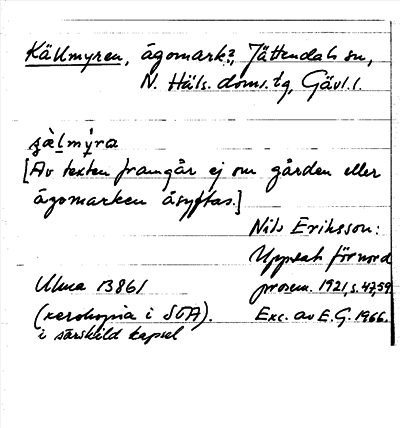 Källmyren, ägomark?, Jättendals sn,
N. Häls. doms. tg, Gävl. l.
sælmýra
[Av texten framgår ej om gården eller
ägomarken åsyftas.]
Nils Eriksson:
Uppsats för nord
prosem. 1921, s. 47, 59
Ulma 13861
(xerokopia i SOA).
i särskild kapsel
Exc. av E.G. 1966.